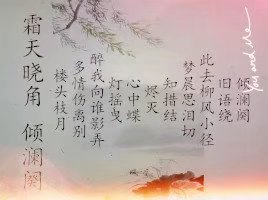 霜天晓角 倾澜阕
倾澜阕
旧语绕
此去柳风小径
梦晨思泪切
知措结
烬灭
心中蝶
灯摇曳
醉我向谁影弄
多情伤离别
楼头枝月
You and me